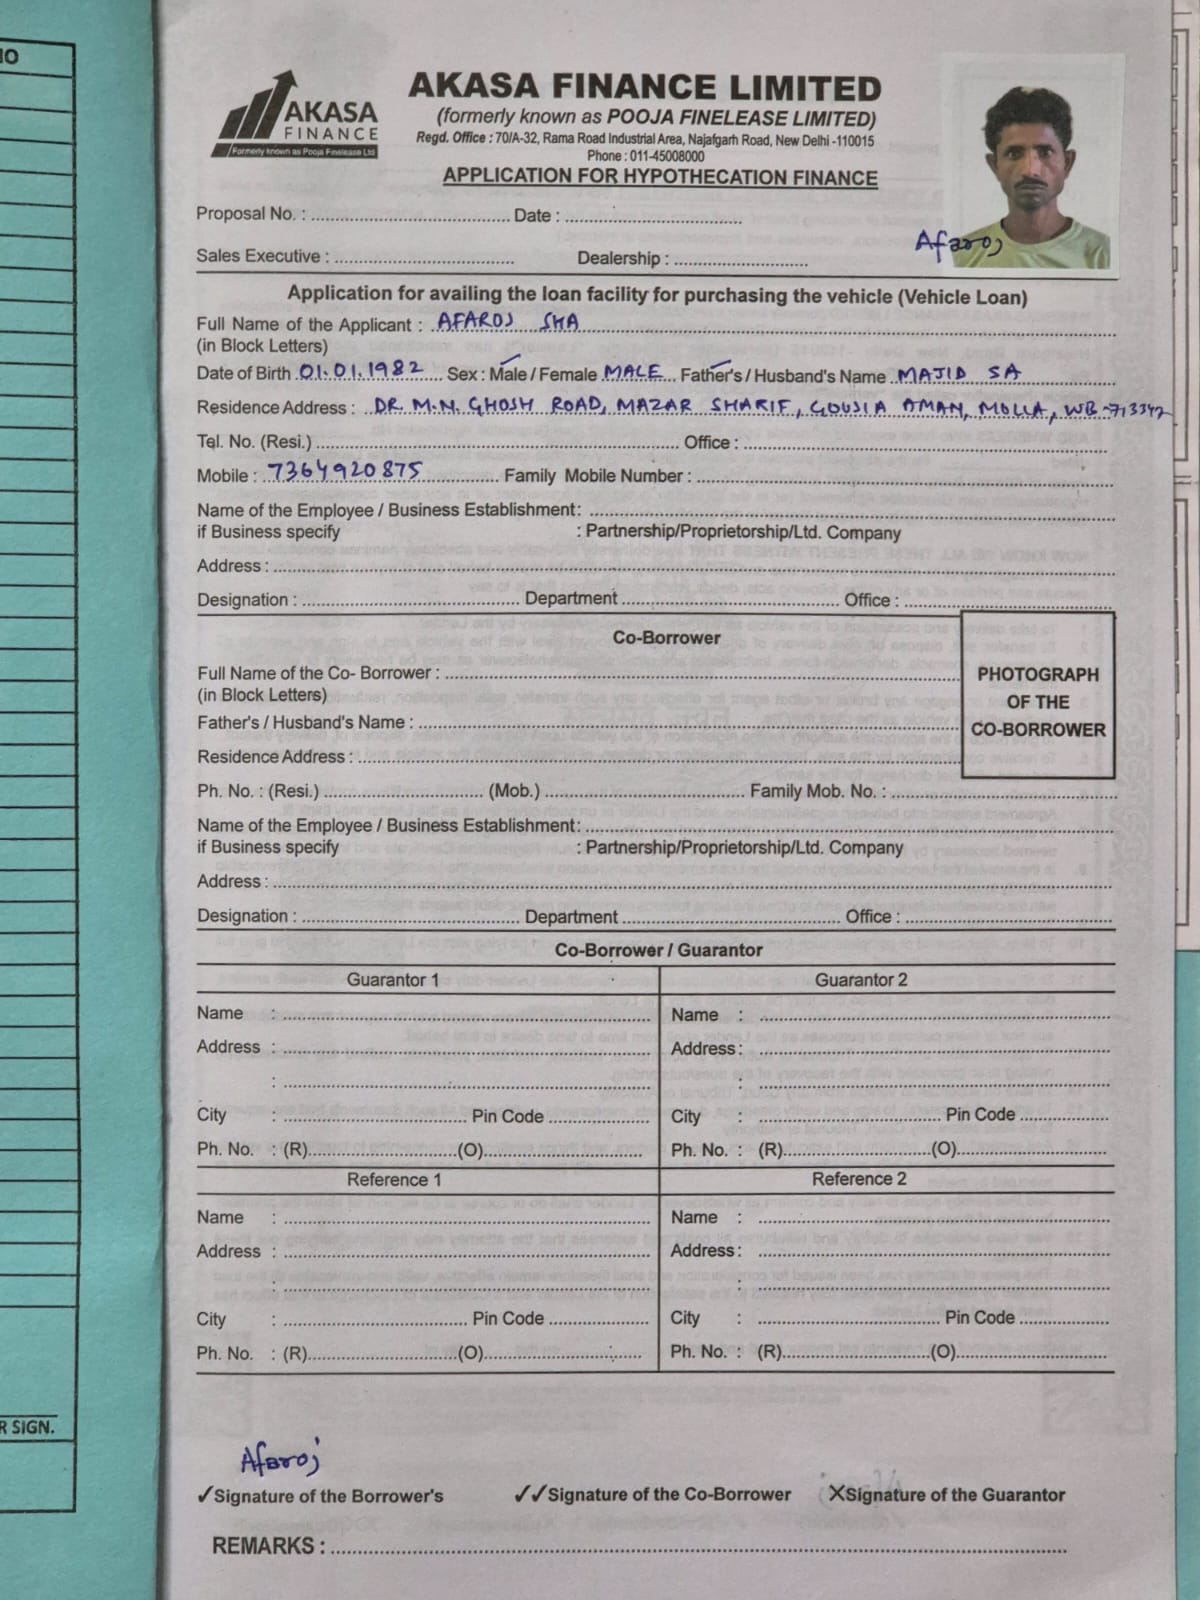 NO
AKASA
FINANCE
Formerly known as Pooja Finelease Ltd
AKASA FINANCE LIMITED
(formerly known as POOJA FINELEASE LIMITED)
Regd. Office : 70/A-32, Rama Road Industrial Area, Najafgarh Road, New Delhi -110015
Phone : 011-45008000
APPLICATION FOR HYPOTHECATION FINANCE
Proposal No. : Date :
Afaroj
Sales Executive : Dealership :
Application for availing the loan facility for purchasing the vehicle (Vehicle Loan)
Full Name of the Applicant : AFAROJ SHA
(in Block Letters)
Date of Birth 01.01.1982 Sex : Male / Female MALE Father's / Husband's Name MAJID SA
Residence Address : DR. M.N. GHOSH ROAD, MAZAR SHARIF, GOUSIA AMAN, MOLLA, WB-713347
Tel. No. (Resi.) Office :
Mobile : 7364920875 Family Mobile Number :
Name of the Employee / Business Establishment:
if Business specify : Partnership/Proprietorship/Ltd. Company
Address :
Designation : Department Office :
Co-Borrower
Full Name of the Co- Borrower :
(in Block Letters)
Father's / Husband's Name :
Residence Address :
PHOTOGRAPH
OF THE
CO-BORROWER
Ph. No. : (Resi.) (Mob.) Family Mob. No. :
Name of the Employee / Business Establishment:
if Business specify : Partnership/Proprietorship/Ltd. Company
Address :
Designation : Department Office :
Co-Borrower / Guarantor
Guarantor 1 Guarantor 2
Name : Name :
Address : Address :
: :
City : Pin Code City : Pin Code
Ph. No. : (R) (O) Ph. No. : (R) (O)
Reference 1 Reference 2
Name : Name :
Address : Address :
: :
City : Pin Code City : Pin Code
Ph. No. : (R) (O) Ph. No. : (R) (O)
R SIGN.
Afaroj
✓Signature of the Borrower's ✓✓Signature of the Co-Borrower XSignature of the Guarantor
REMARKS :